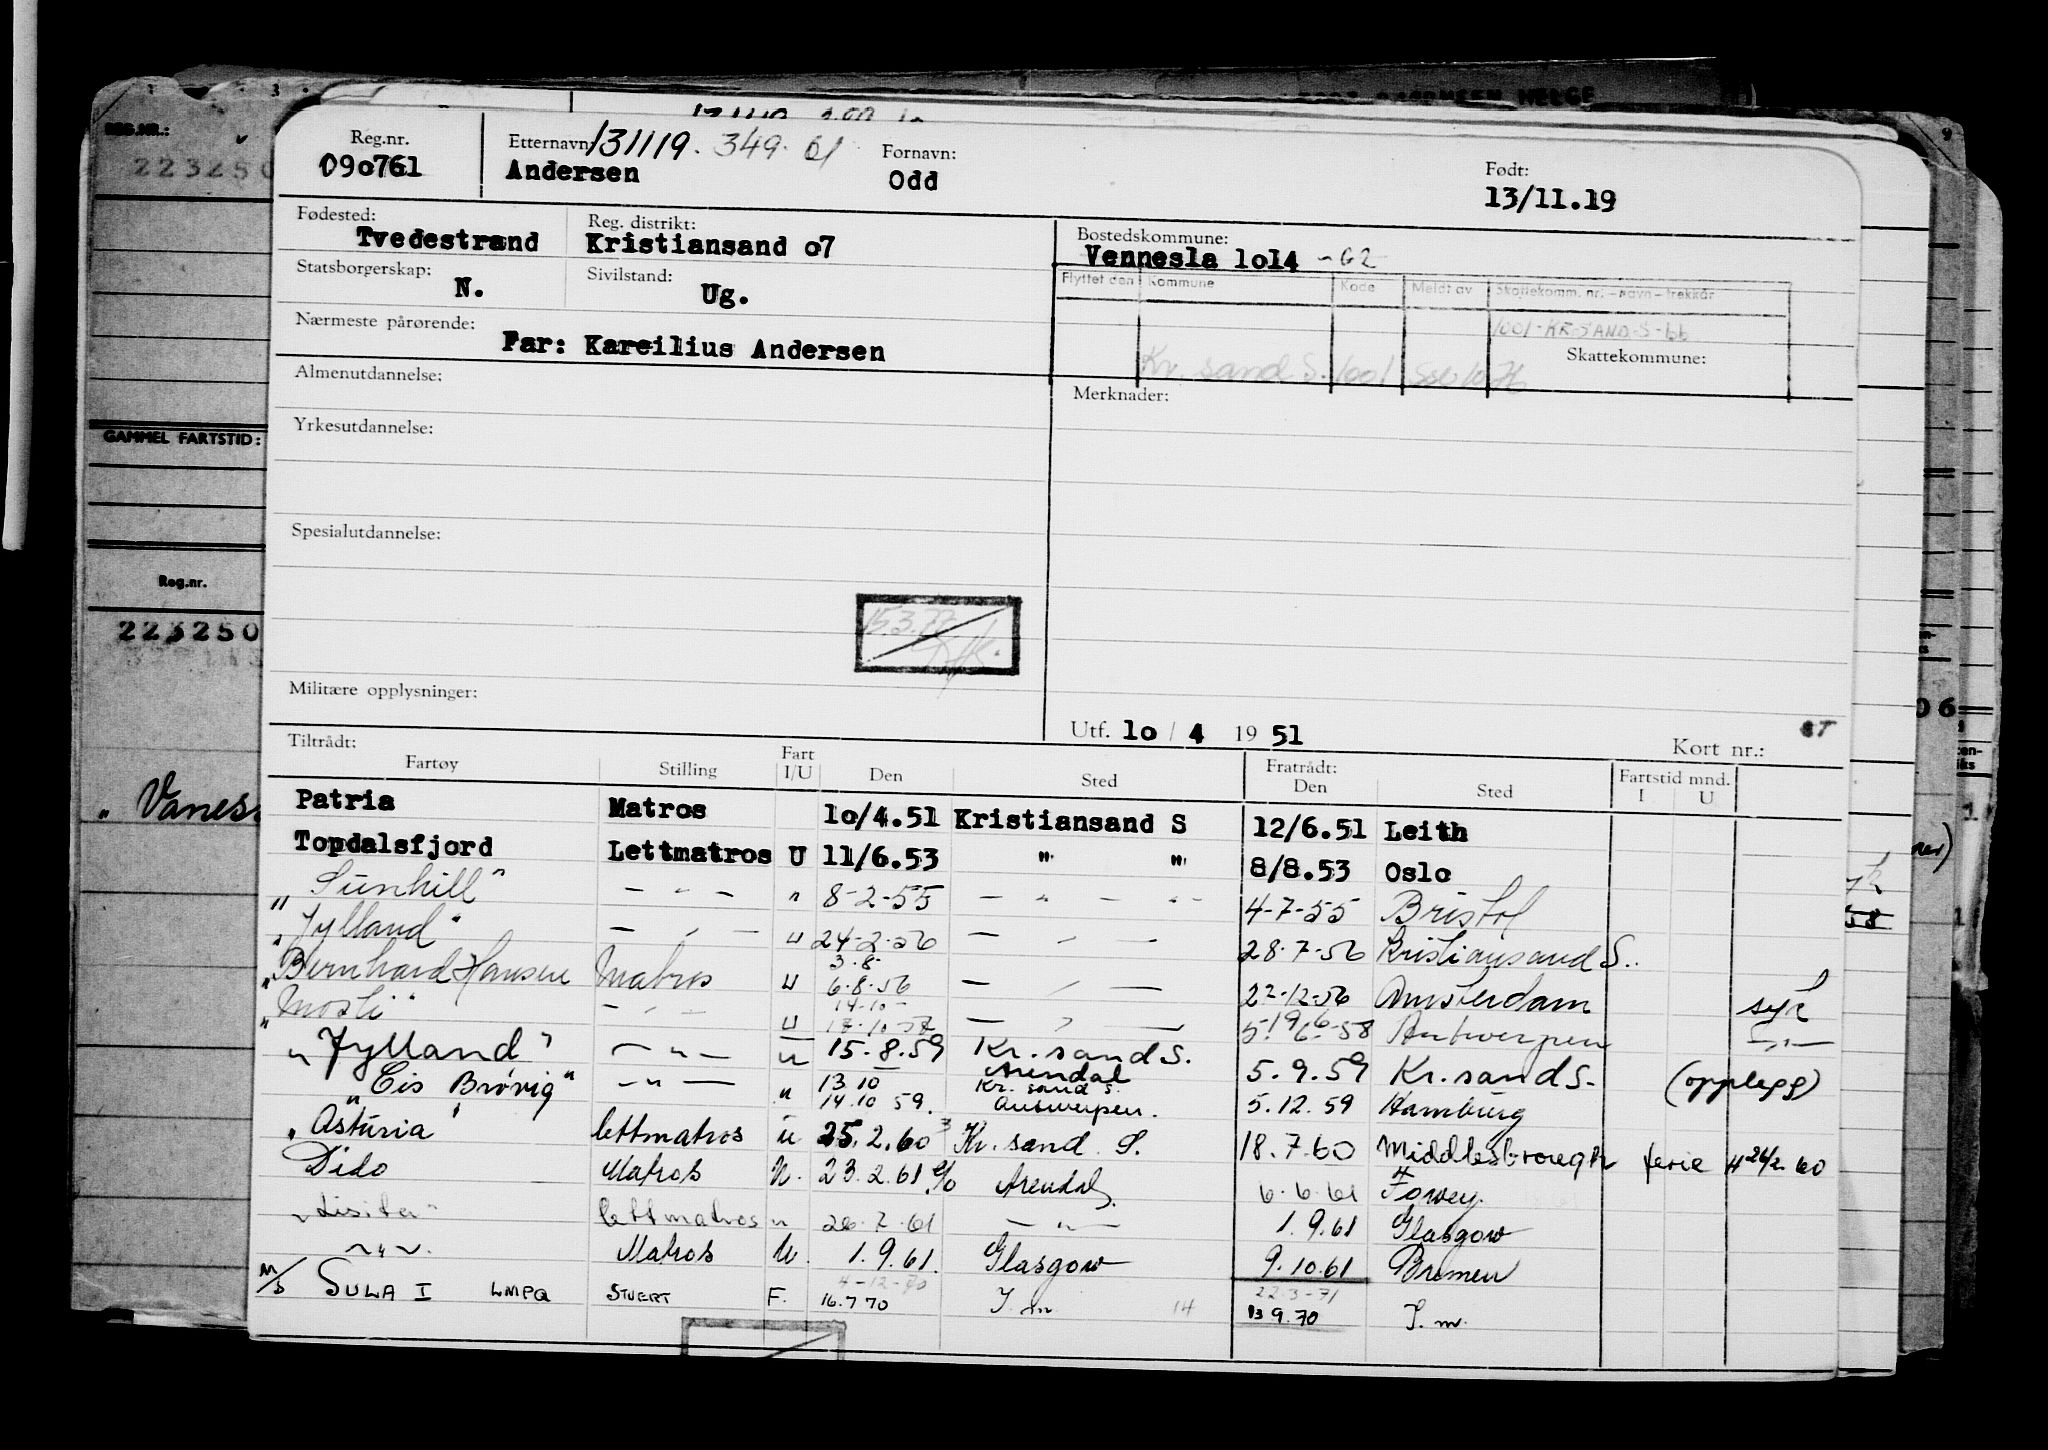 REG.NR.:
223250
GAMMEL FARTSTID:
Reg.nr.
223250
„ Vanes
Reg.nr. 090761
Etternavn: 131119. 349. 61
Andersen
Fornavn: Odd
Født: 13/11.19
Fødested: Tvedestrand
Reg. distrikt: Kristiansand o7
Bostedskommune: Vennesla 1o14 -62
Statsborgerskap: N.
Sivilstand: Ug.
Flyttet den Kommune Kode Meldt av Skattekomm. nr. - navn - trekkår
1001-KR.SAND-S-66
Nærmeste pårørende: Far: Kareilius Andersen
Kr. sand S. 1001
Skattekommune:
Almenutdannelse:
Merknader:
Yrkesutdannelse:
Spesialutdannelse:
15.3.77
Militære opplysninger:
Utf. 1o / 4 19 51
Kort nr.:
Tiltrådt: Fartøy Stilling Fart I/U Den Sted Fratrådt: Den Sted Fartstid mnd. I U
Patria Matros 1o/4.51 Kristiansand S 12/6.51 Leith
Topdalsfjord Lettmatros U 11/6.53 " " 8/8.53 Oslo
"Sunhill" — " — " 8-2-55 — " — " — 4-7-55 Bristol
"Jylland" — " — U 24-2-56 — " — 28.7-56 Kristiansand S.
"Bernhard Hansen Matros U 3.8- 6.8.56 — " — 22-12-56 Amsterdam syk
"Mosli" — " — U 14.10- 17.10.57 — " — 5.6-58 Antwerpen — " —
"Jylland" — " — u 15.8.59 Kr. sand S. 5.9.59 Kr. sand S. (opplegg)
"Eis Brøvig" — " — " 13.10 14.10 59. Arendal Kr. sand S. Antwerpen. 5.12.59 Hamburg
"Asturia" lettmatros u 25.2.60 Kr. sand S. 18.7.60 Middlesbrough ferie # 26/2.60
Dido Matros U. 23.2.61 Arendal. 6.6.61 Fowey.
"Lisita" lettmatros " 26.7.61 — " — 1.9.61 Glasgow
— " —. Matros U. 1.9.61. Glasgow 9.10.61 Bremen
4-12-70 22-3-71
M/S SULA I LMPQ STUERT F. 16.7 70 I. m 14 13 9.70 I. m.